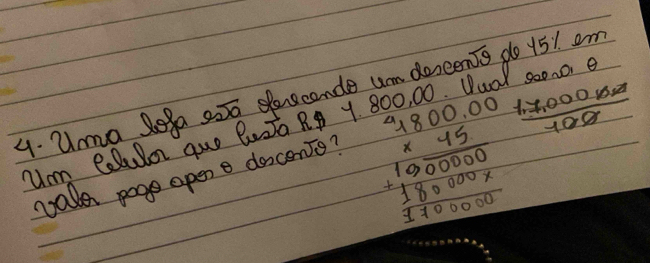 4. Uma loja está oferecendo um desconto de 15% em
um celular que custa R$ 1.800,00. Qual será o
valor pago após o desconto?
1800.00
× 15
1900000
+ 180000×
1700000
17000
100